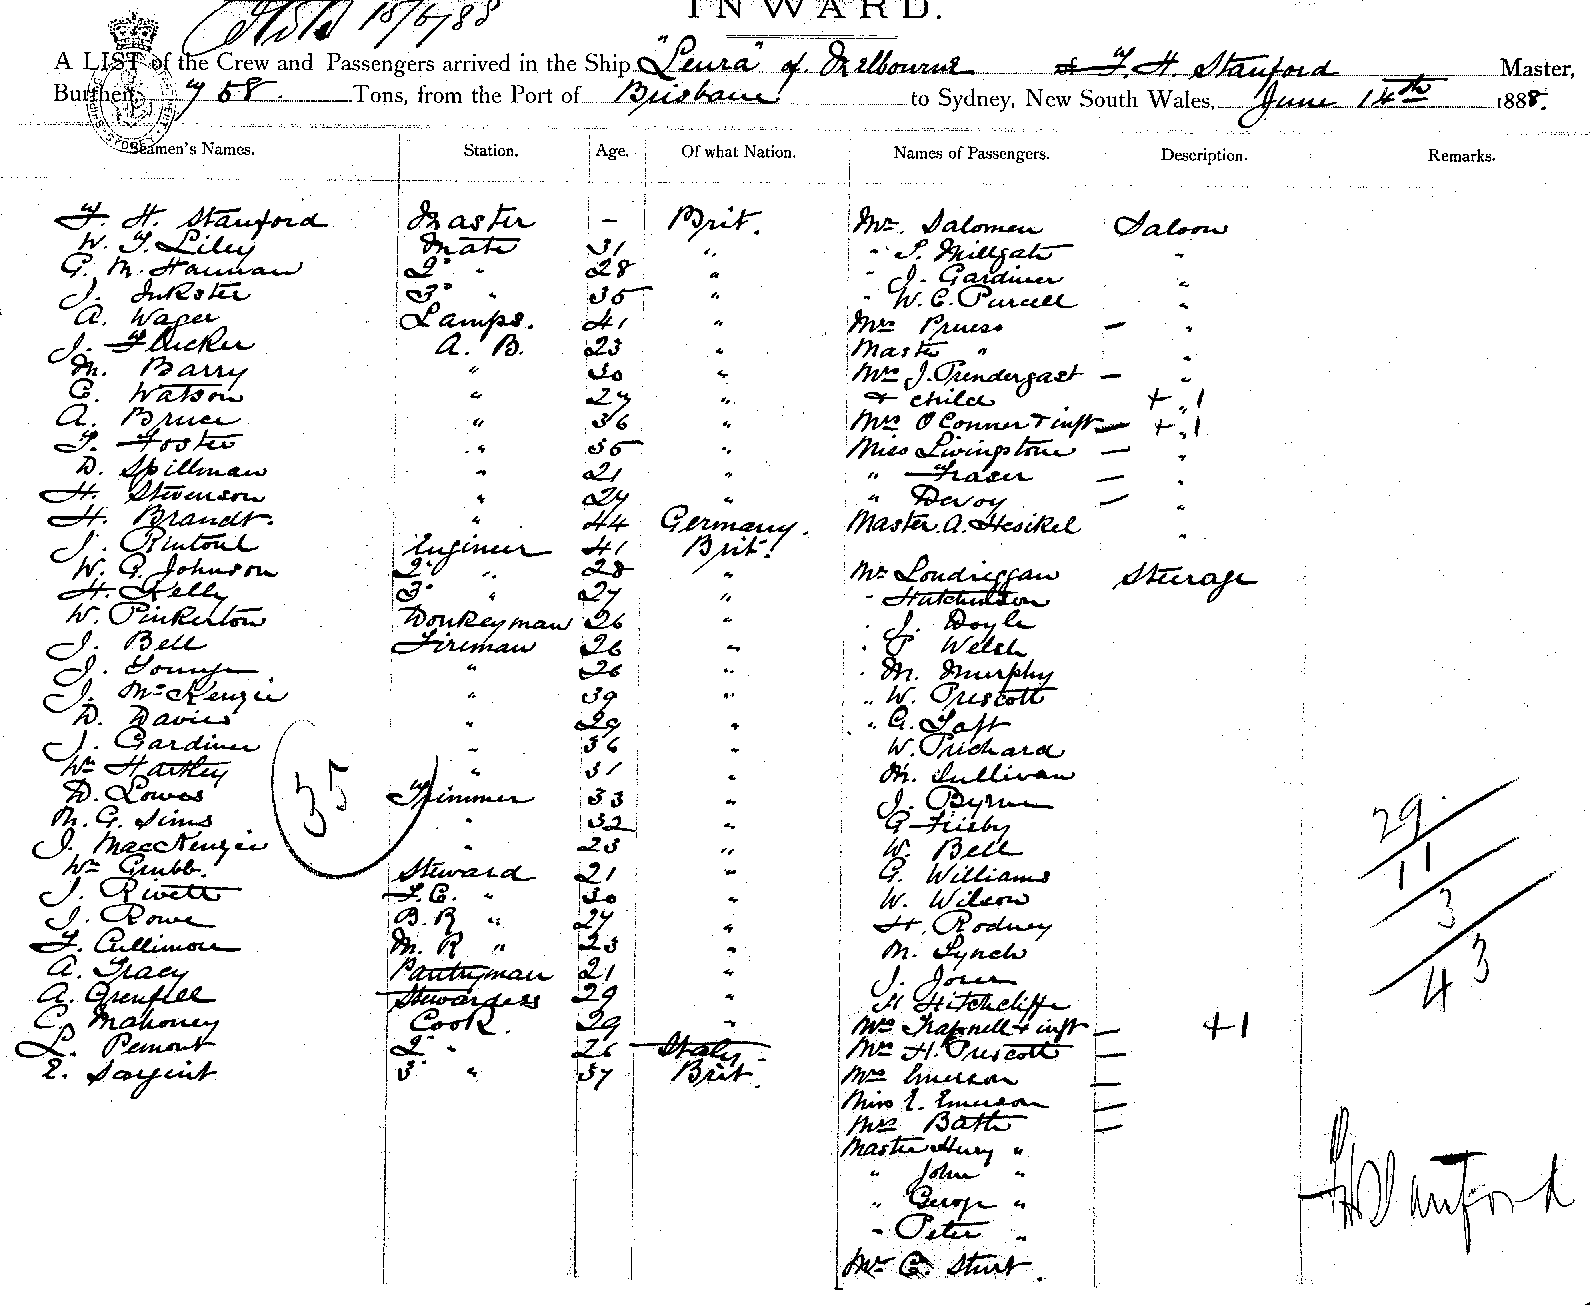 15/6/88
INWARD.
A LIST of the Crew and Passengers arrived in the Ship "Leura" of Melbourne F. H. Stanford Master,
Burthen 758 Tons, from the Port of Brisbane to Sydney, New South Wales, June 14th 1888.
Seamen's Names. Station. Age. Of what Nation. Names of Passengers. Description. Remarks.
F. H. Stanford Master - Brit. Mr. Salomen Saloon
W. F. Liley Mate 31 " " S. Millgate "
G. M. Hannan 2d " 28 " " J. Gardiner "
J. Inkster 3d " 35 " " W. C. Purcell "
A. Wager Lamps. 41 " Mrs Pruess - "
J. Flucker A. B. 23 " Master " "
M. Barry " 30 " Mrs J. Prendergast - "
C. Watson " 27 " + child + " 1
A. Bruce " 36 " Mrs O Conner + inft - + " 1
T. Foster " 35 " Miss Livingstone - "
D. Spillman " 21 " " Fraser - "
H. Stevenson " 27 " " Devoy - "
H. Brandt. " 44 Germany. Master A. Hesikel "
J. Rintoul Engineer 41 Brit.
W. G. Johnson 2d " 28 " Mr Loudriggan Steerage
H. Kelly 3d " 27 " " Hutchinson
W. Pinkerton Donkeyman 26 " " J. Doyle
J. Bell Fireman 26 " " P Welsh
J. Young " 26 " " M. Murphy
J. McKenzie " 39 " " W. Prescott
D. Davies " 29 " " G. Taft
J. Gardiner " 36 " W. Prichard
Wm Hartley " 31 " M. Sullivan
D. Lowes Trimmer 33 " J. Byrne
35
M. G. Sims " 32 " G Frisby
29
J. MacKenzie " 23 " W. Bell
11
Wm Grubb. Steward 21 " G. Williams
J. Rivett F.C. " 30 " W. Wilson
3
J. Rowe B. R " 27 " H. Rodney
F. Cullimore M. R " 23 " M. Lynch
43
A. Tracy Pantryman 21 " J. Jones
A. Grenfell Stewardess 29 " H Hitchcliffe
C. Mahoney Cook. 29 " Mrs Trapnell + inft - +1
L. Pemont 2d " 26 Italy Mrs H. Prescott -
E. Sargint 3d " 37 Brit. Mrs Emerson -
Miss E. Emerson -
Mrs Bath -
Master Henry "
" John "
" George "
" Peter "
Mr C. Sturt.
F H Stanford